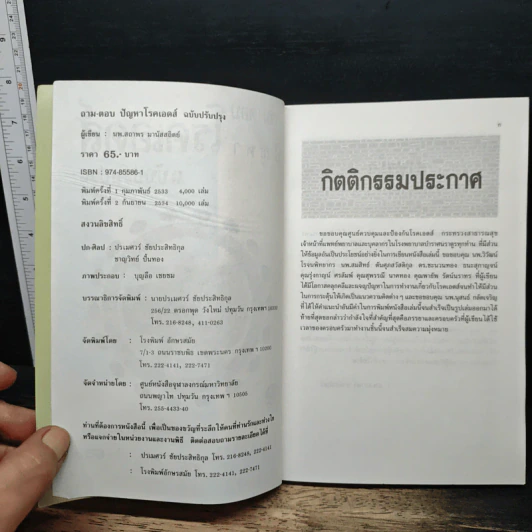 ถาม-ตอบ ปัญหาโรคเอดส์ ฉบับปรับปรุง
ผู้เขียน : นพ.สถาพร มานัสสถิตย์
ราคา 65.- บาท
ISBN : 974-85566-1
พิมพ์ครั้งที่ 1 กุมภาพันธ์ 2533 4,000 เล่ม
พิมพ์ครั้งที่ 2 กันยายน 2534 10,000 เล่ม
สงวนลิขสิทธิ์
ปก-ศิลป : ประเมศวร์ ชัยประสิทธิกุล
ชาญวิทย์ ปิ่นทอง
ภาพประกอบ : บุญลือ เขยชม
บรรณาธิการจัดพิมพ์ : นายประเมศวร์ ชัยประสิทธิกุล
256/22 ตรอกพุด วังใหม่ ปทุมวัน กรุงเทพฯ
โทร. 216-8248, 411-0263
จัดพิมพ์โดย : โรงพิมพ์ อักษรสมัย
โทร. 222-4141, 222-7471
จัดจำหน่ายโดย : ศูนย์หนังสือจุฬาลงกรณ์มหาวิทยาลัย
ถนนพญาไท ปทุมวัน กรุงเทพ ฯ 10500
โทร. 255-4433-40
ท่านที่ต้องการหนังสือนี้ เพื่อเป็นของขวัญที่ระลึกให้คนที่ท่านรักและห่วงใย
หรือแจกจ่ายในหน่วยงานและงานพิธี ติดต่อสอบถามรายละเอียดได้ที่
: ประเมศวร์ ชัยประสิทธิกุล โทร. 216-8248,
: โรงพิมพ์อักษรสมัย โทร. 222-4141, 222-7471
กิตติกรรมประกาศ
ขอขอบคุณศูนย์ควบคุมและป้องกันโรคเอดส์ กระทรวงสาธารณสุข
เจ้าหน้าที่แพทย์พยาบาลและบุคลากรในโรงพยาบาลบำราศนราดูรทุกท่าน ที่มีส่วน
ให้ข้อมูลอันเป็นประโยชน์อย่างยิ่งในการเขียนหนังสือเล่มนี้ ขอขอบคุณ นพ.วิวัฒน์
โรจนพิทยากร
ที่ผู้เขียน
ได้มีโอกาสพูดคุยถึงปัญหาในการทำงานเกี่ยวกับโรคเอดส์จนทำให้มีส่วน
ในการกระตุ้นให้เกิดเป็นแนวความคิดต่าง ๆ และขอขอบคุณ
ที่ได้ให้คำแนะนำอันมีค่าในการพิมพ์หนังสือเล่มนี้จนสำเร็จเป็นรูปเล่มออกมาได้
ท้ายที่สุดขอกล่าวว่ากำลังใจที่สำคัญที่สุดคือภรรยาและครอบครัวที่ผู้เขียนได้ใช้
เวลาของครอบครัวมาทำงานชิ้นนี้จนสำเร็จสมความมุ่งหมาย